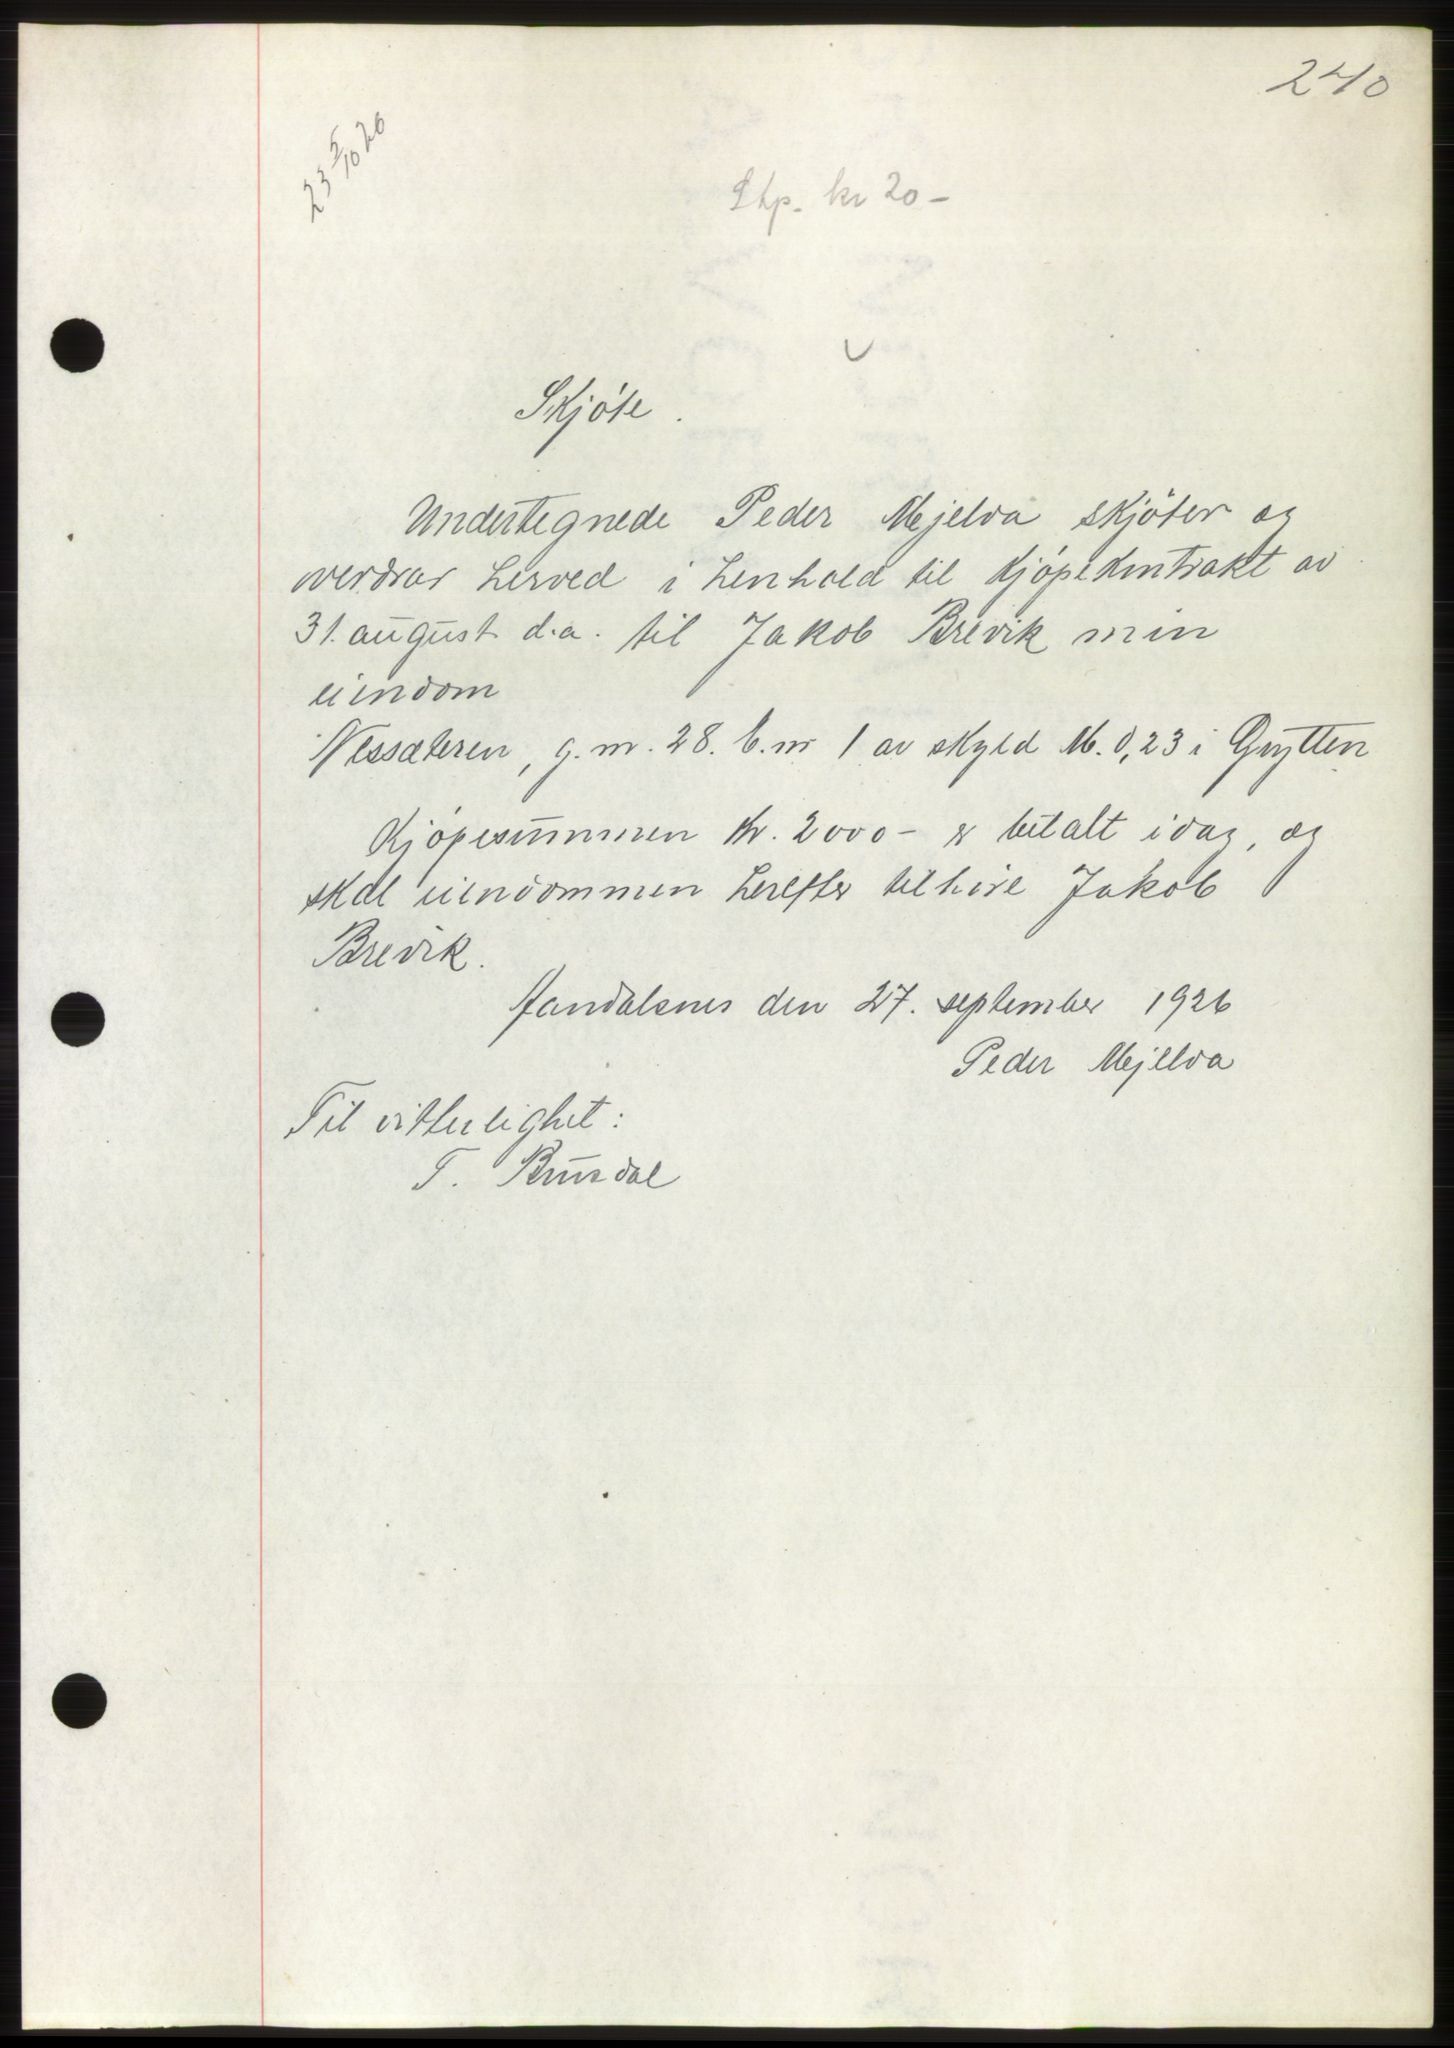 240
23 5/10 26
Stp. kr 20 –
Skjöte.
Undertegnede Peder Mjelva skjöter og
overdrar herved i henhold til kjöpekontrakt av
31. august d.a. til Jakob Brevik min
eiendom
Nessæteren, g.nr. 28. b.nr 1 av skyld M. 0,23 i Grytten
Kjöpesummen kr. 2000 – er betalt idag, og
skal eiendommen herefter tilhöre Jakob
Brevik.
Aandalsnes den 27. september 1926
Peder Mjelva
Til vitterlighet:
T. Brusdal